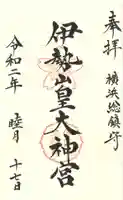 奉拝
横浜総鎮守
伊勢山皇大神宮
令和二年
睦月
十七日